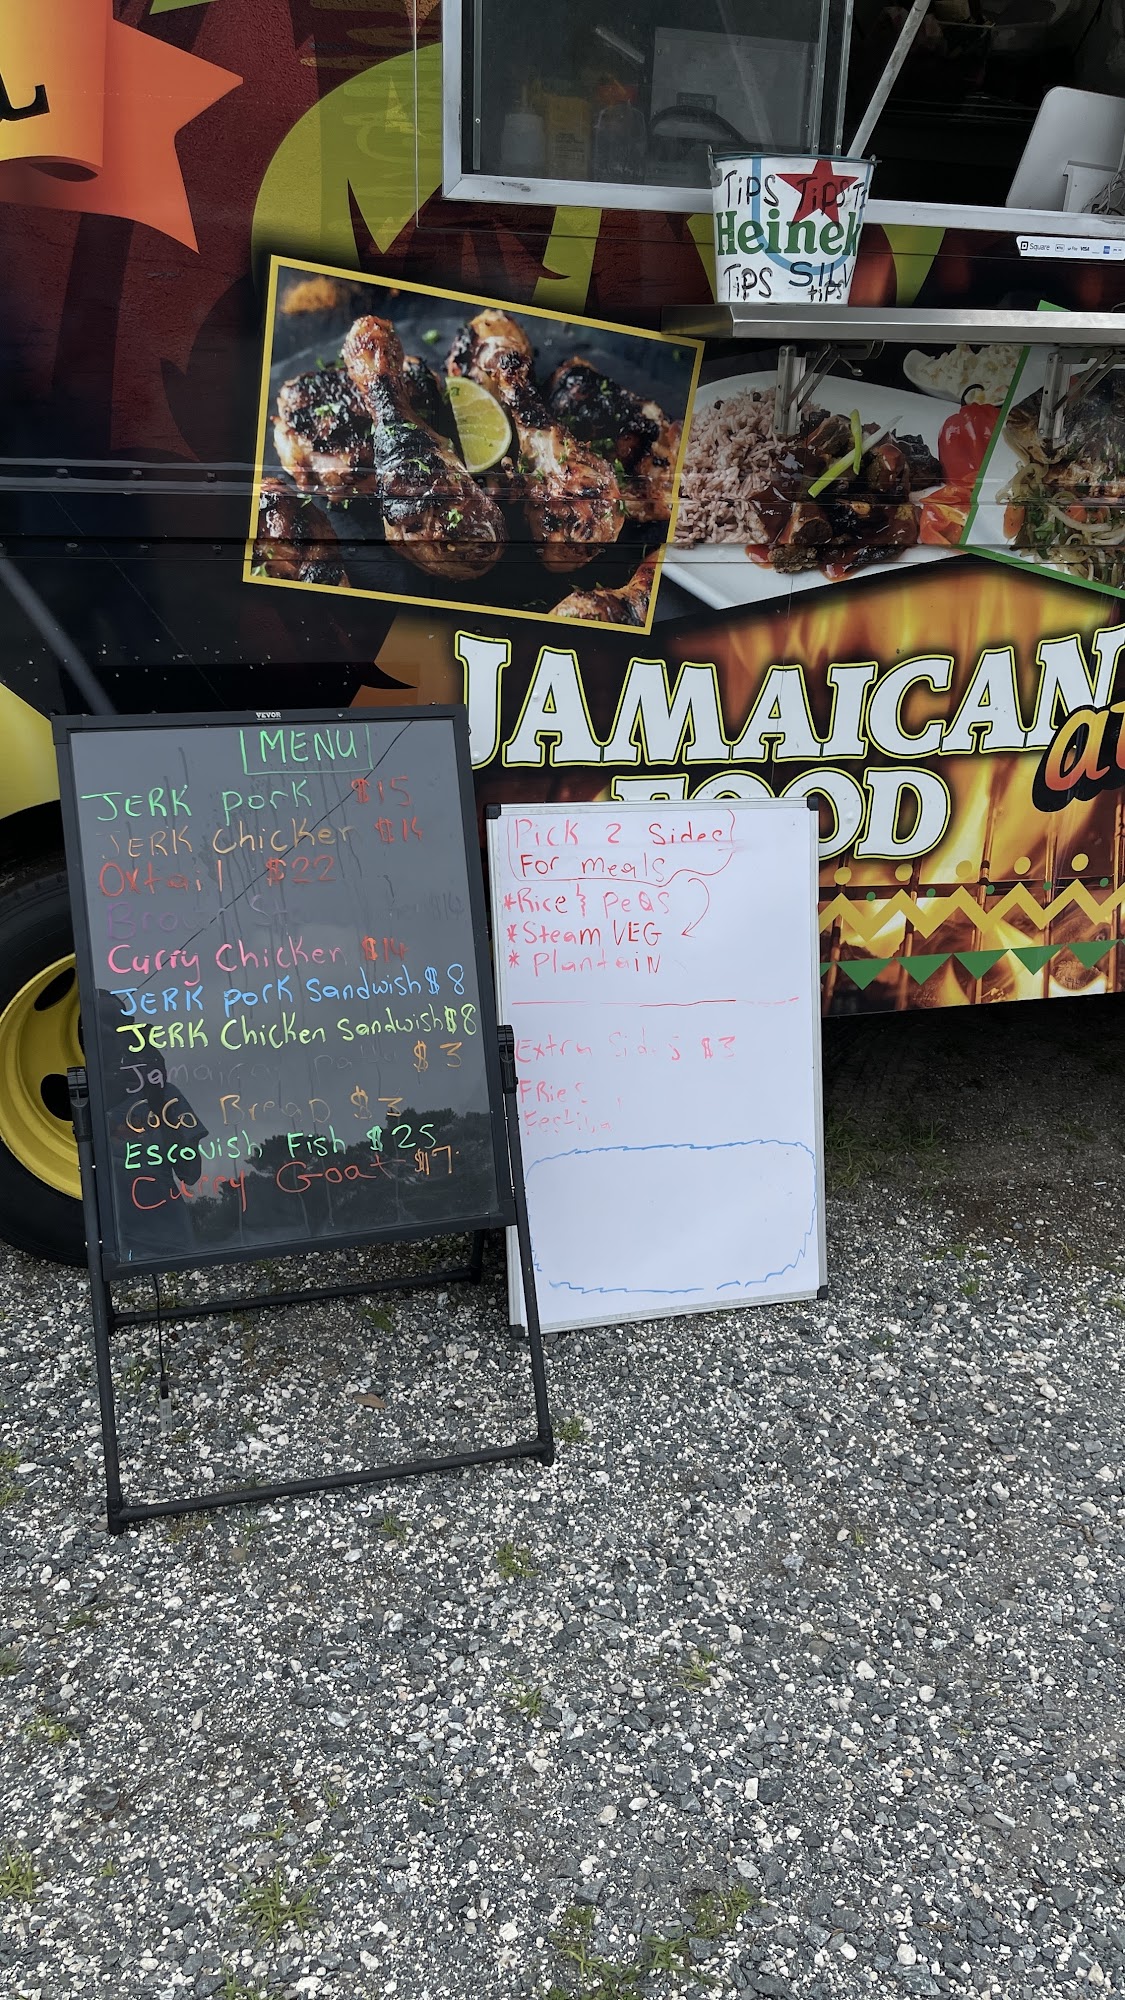 TiPS TiPS
Heinek
TiPS SILV
tips
Square
Pay VISA
JAMAICAN
FOOD
VEVOR
MENU
JERK pork $15
JERK Chicken $14
Oxtail $22
Brown
Curry Chicken $14
JERK pork Sandwish $8
JERK Chicken Sandwish $8
Jamaican $3
CoCo Bread $3
Escovish Fish $25
Curry Goat $17
Pick 2 Sides
For meals
*Rice & Peas
*Steam VEG
* PlantaiN
Extra Sides $3
FRies
Festival